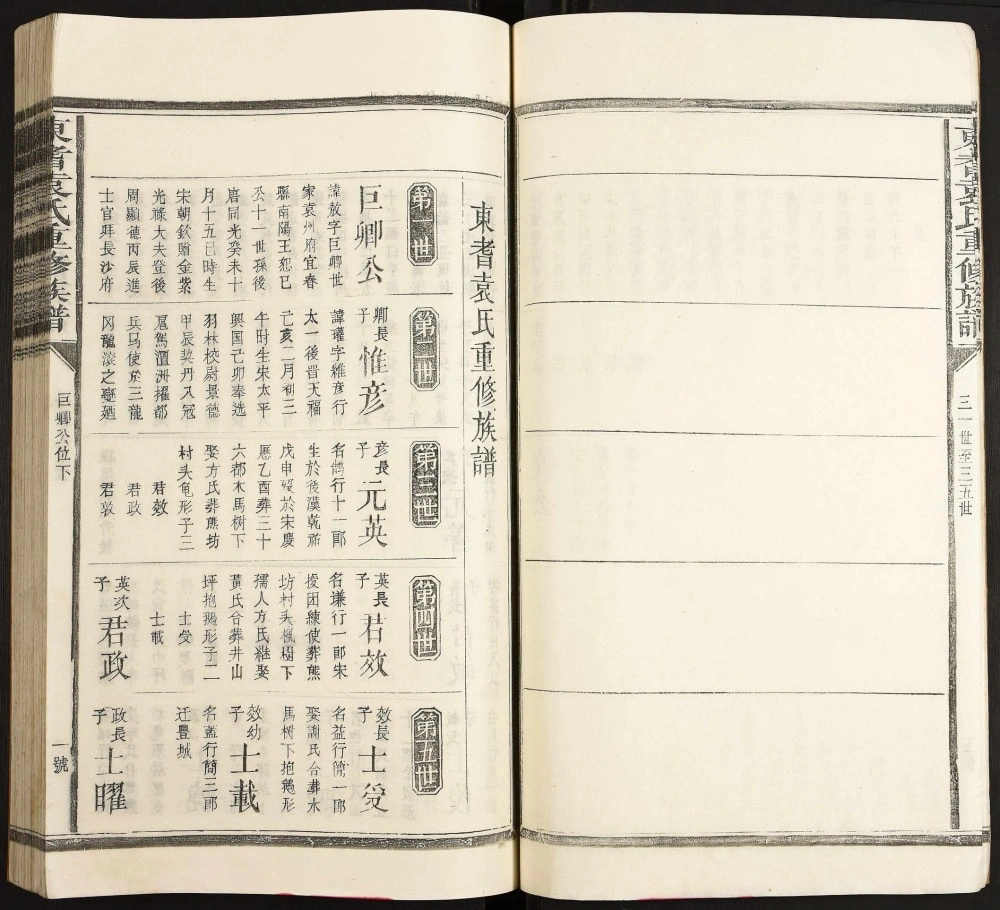 東耆袁氏重修族譜
三一世至三五世
東耆袁氏重修族譜
第一世
巨卿公
諱敖字巨卿世
家袁州府宜春
縣南陽王恕己
公十一世孫後
唐同光癸未十
月十五巳時生
宋朝欽贈金紫
光祿大夫登後
周顯德丙辰進
士官拜長沙府
第二世
卿長子惟彦
諱瓘字維彦行
太一後晋天福
己亥二月初三
午时生朱太平
興国己卯奉选
羽林校尉景德
甲辰契丹入冦
扈駕澶洲擢都
兵马使於三龍
冈龍滚之
第三世
彦長子元英
名鹄行十一郎
生於後漢乾祐
戊申殁於宋慶
厯乙酉葬三十
六都木馬树下
娶方氏葬熊坊
村头龟形子三
君效
君政
君敦
第四世
英長子君效
名谦行一郎宋
授团練使葬熊
坊村头楓樹下
孺人方氏継娶
黄氏合葬井山
坪抱鵝形子二
士受
士載
英次子君政
第五世
效長子士受
名益行院一郎
娶謝氏合葬木
馬树下抱鵝形
效幼子士載
名蓋行簡三郎
迁豊城
政長子士曜
東耆袁氏重修族譜
巨卿公位下
一號